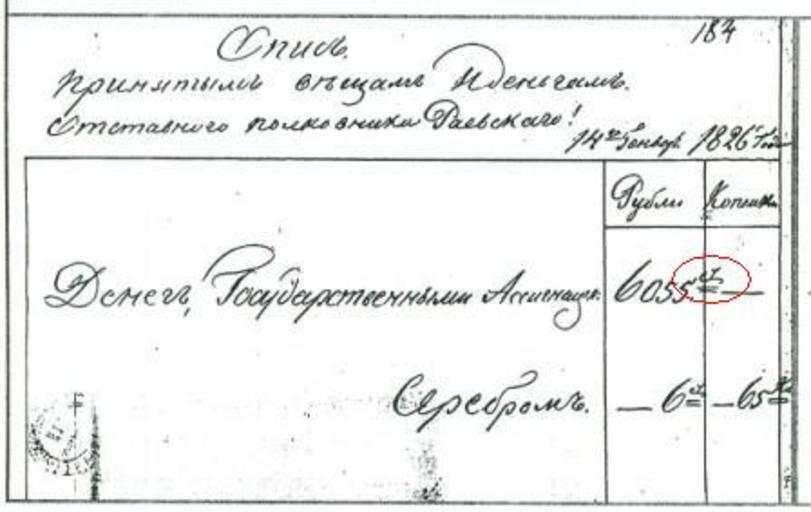 184
Опись
принятымъ вещамъ и деньгамъ.
Отставного полковника Раевскаго!
14го Генваря 1826 Года
Рубли Копейки
Денегъ, Государственными Ассигнацiями. 6055 —
Серебромъ. — 6 — 65